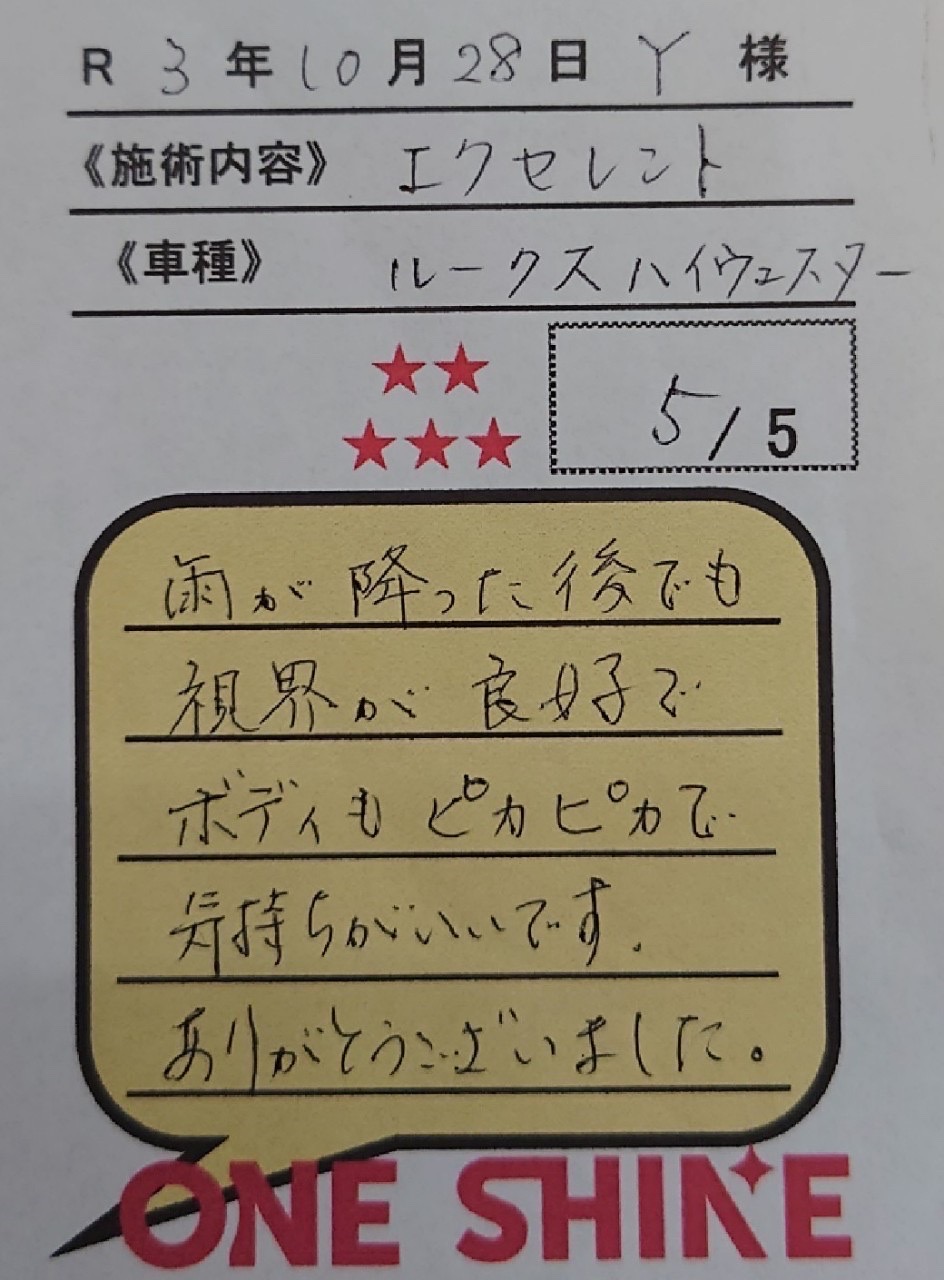 R 3年10月28日 Y 様
《施術内容》 エクセレント
《車種》 ルークスハイウェスター
5/5
雨が降った後でも
視界が良好で
ボディもピカピカで
気持ちがいいです.
ありがとうございました。
ONE SHINE